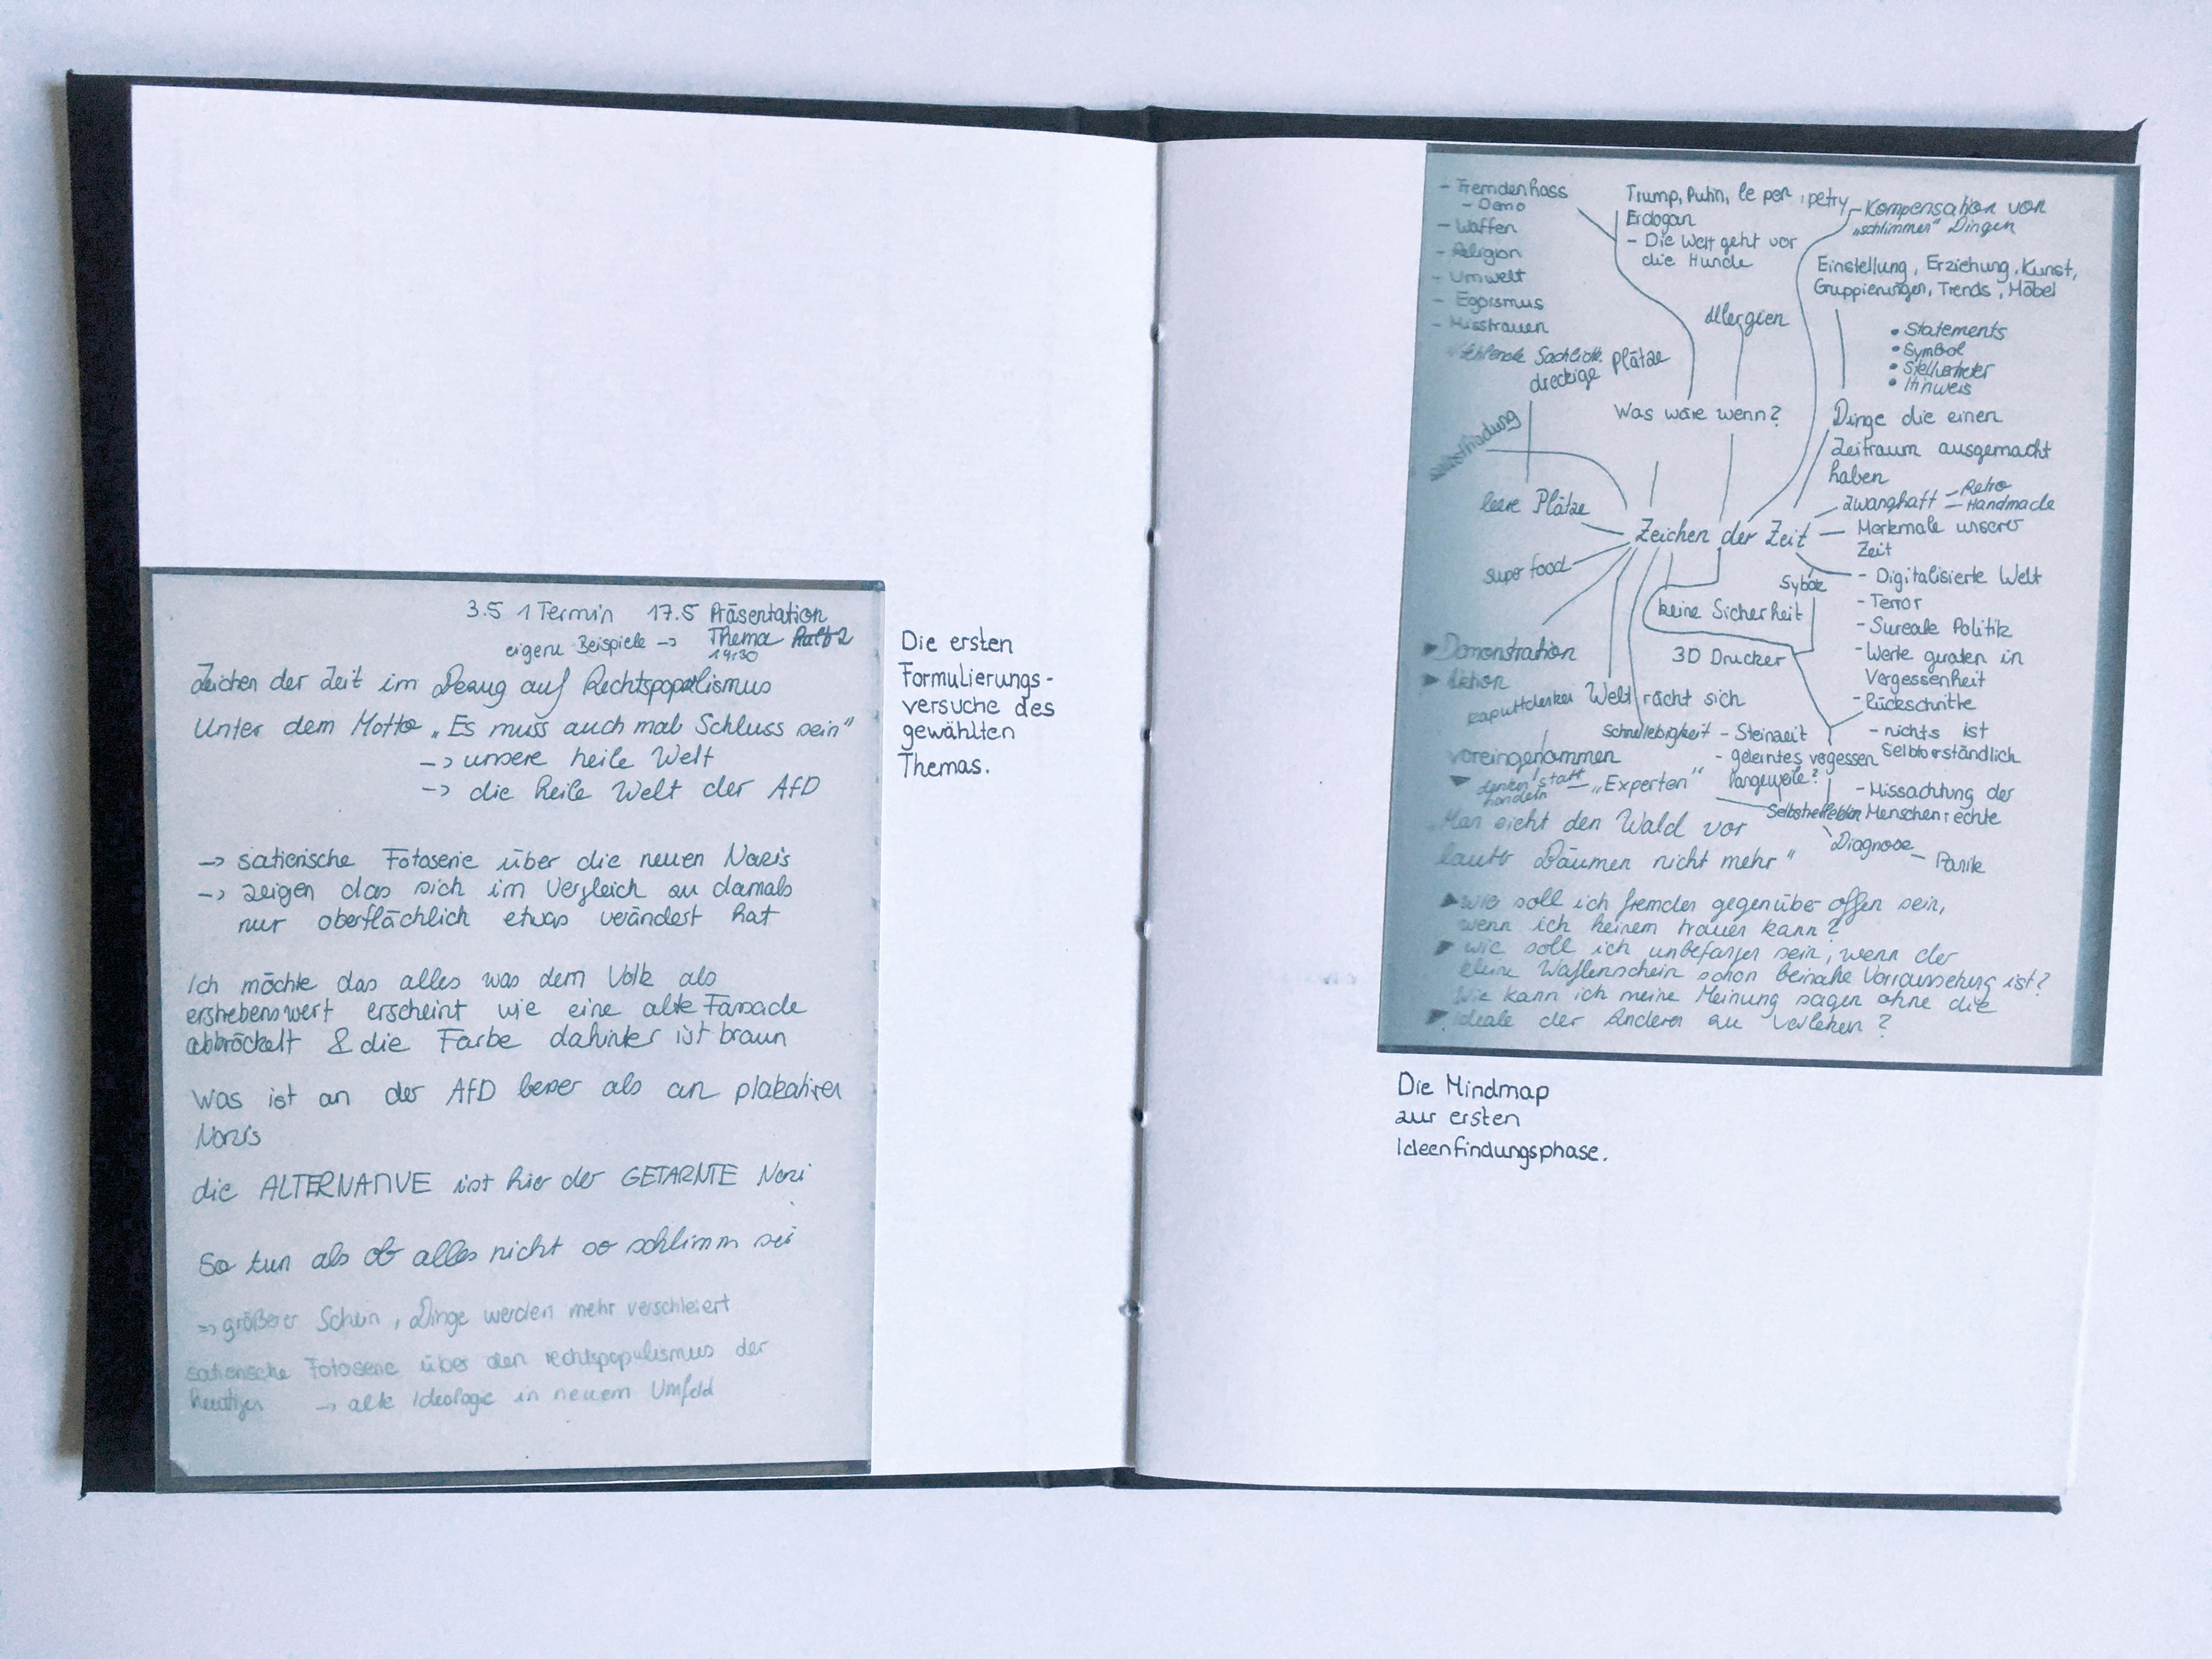 3.5 1 Termin 17.5 Präsentation
eigene Beispiele -> Thema
14:30
Zeichen der Zeit im Bezug auf Rechtspopolismus
Unter dem Motto „Es muss auch mal Schluss sein"
-> unsere heile Welt
-> die heile Welt der AfD
-> satierische Fotoserie über die neuen Nazis
-> zeigen das sich im Vergleich zu damals
nur oberflächlich etwas verändert hat
Ich möchte das alles was dem Volk als
erstrebenswert erscheint wie eine alte Fassade
abbröckelt & die Farbe dahinter ist braun
Was ist an der AfD besser als an plakativen
Nazis
die ALTERNATIVE ist hier der GETARNTE Nazi
So tun als ob alles nicht so schlimm sei
=> größerer Schein, Dinge werden mehr verschleiert
satierische Fotoserie über den rechtspopulismus der
heutigen -> alte Ideologie in neuem Umfeld
Die ersten
Formulierungs-
versuche des
gewählten
Themas.
- Fremdenhass
- Demo
- Waffen
- Religion
- Umwelt
- Egoismus
- Misstrauen
fehlende Sachlichk.
Trump, Putin, le pen, petry
Erdogan
- Die Welt geht vor
die Hunde
- Kompensation von
„schlimmen" Dingen
Einstellung, Erziehung, Kunst,
Gruppierungen, Trends, Möbel
Allergien
• Statements
• Symbol
• Stellvertreter
• Hinweis
dreckige Plätze
Was wäre wenn?
Dinge die einen
Zeitraum ausgemacht
haben
Selbstfindung
leere Plätze
Zeichen der Zeit
zwanghaft - Retro
- Handmade
Merkmale unserer
Zeit
super food
keine Sicherheit
3D Drucker
- Digitalisierte Welt
- Terror
- Sureale Politik
- Werte geraten in
Vergessenheit
- Rückschritte
- nichts ist
Selbstverständlich
- Missachtung der
Menschenrechte
Demonstration
Aktion
kaputtdenken
Welt rächt sich
Schnellebigkeit - Steinzeit
- gelerntes vegessen
Langeweile?
voreingenommen
denken statt handeln
- „Experten"
Diagnose - Panik
„Man sieht den Wald vor
lauter Bäumen nicht mehr"
wie soll ich fremden gegenüber offen sein,
wenn ich keinem trauen kann?
wie soll ich unbefangen sein, wenn der
kleine Waffenschein schon beinahe Vorraussetzung ist?
Wie kann ich meine Meinung sagen ohne die
Ideale der Anderen zu verletzen?
Die Mindmap
zur ersten
Ideenfindungsphase.